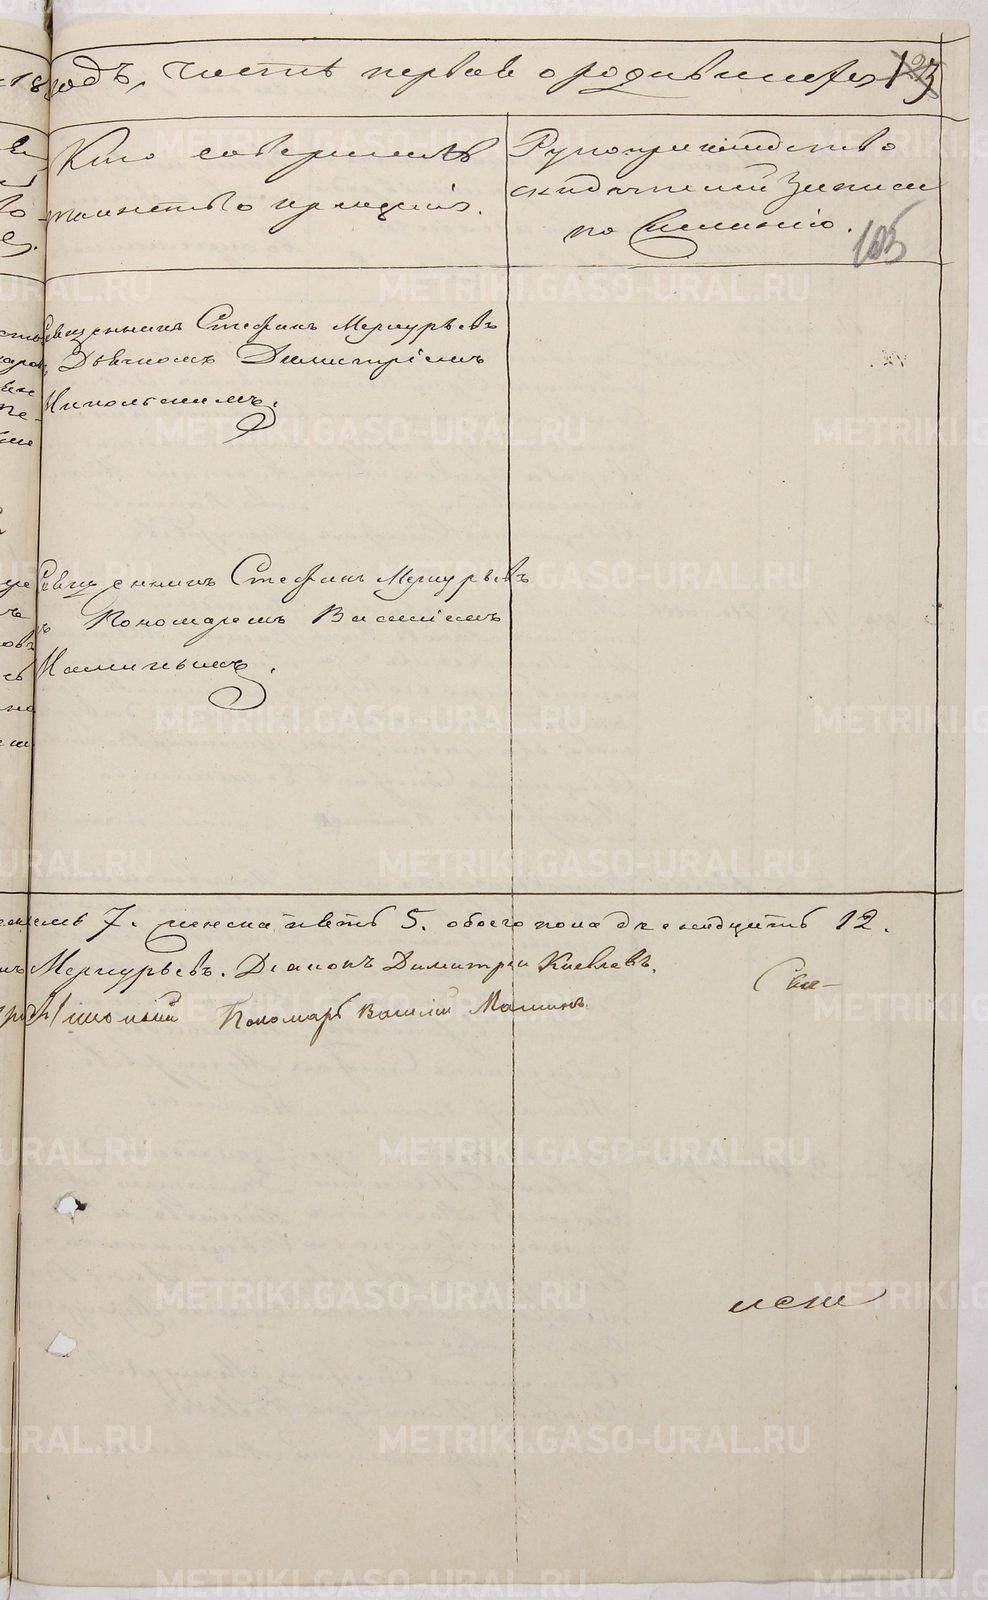 годъ, часть первая о родившихся 123
Кто совершалъ
таинство крещенія.
Рукоприкладство
свидѣтелей записи
по желанію.
105
Священникъ Стефанъ Меркурьевъ
Дьячкомъ Димитріемъ
Никольскимъ.
Священникъ Стефанъ Меркурьевъ
съ Пономаремъ Василіемъ
Маминымъ.
7. женска пять 5. обоего пола двенадцать 12.
Меркурьевъ. Діаконъ Димитрій Киевлевъ.
Никольский Пономарь Василий Маминъ
METRIKI.GASO-URAL.RU